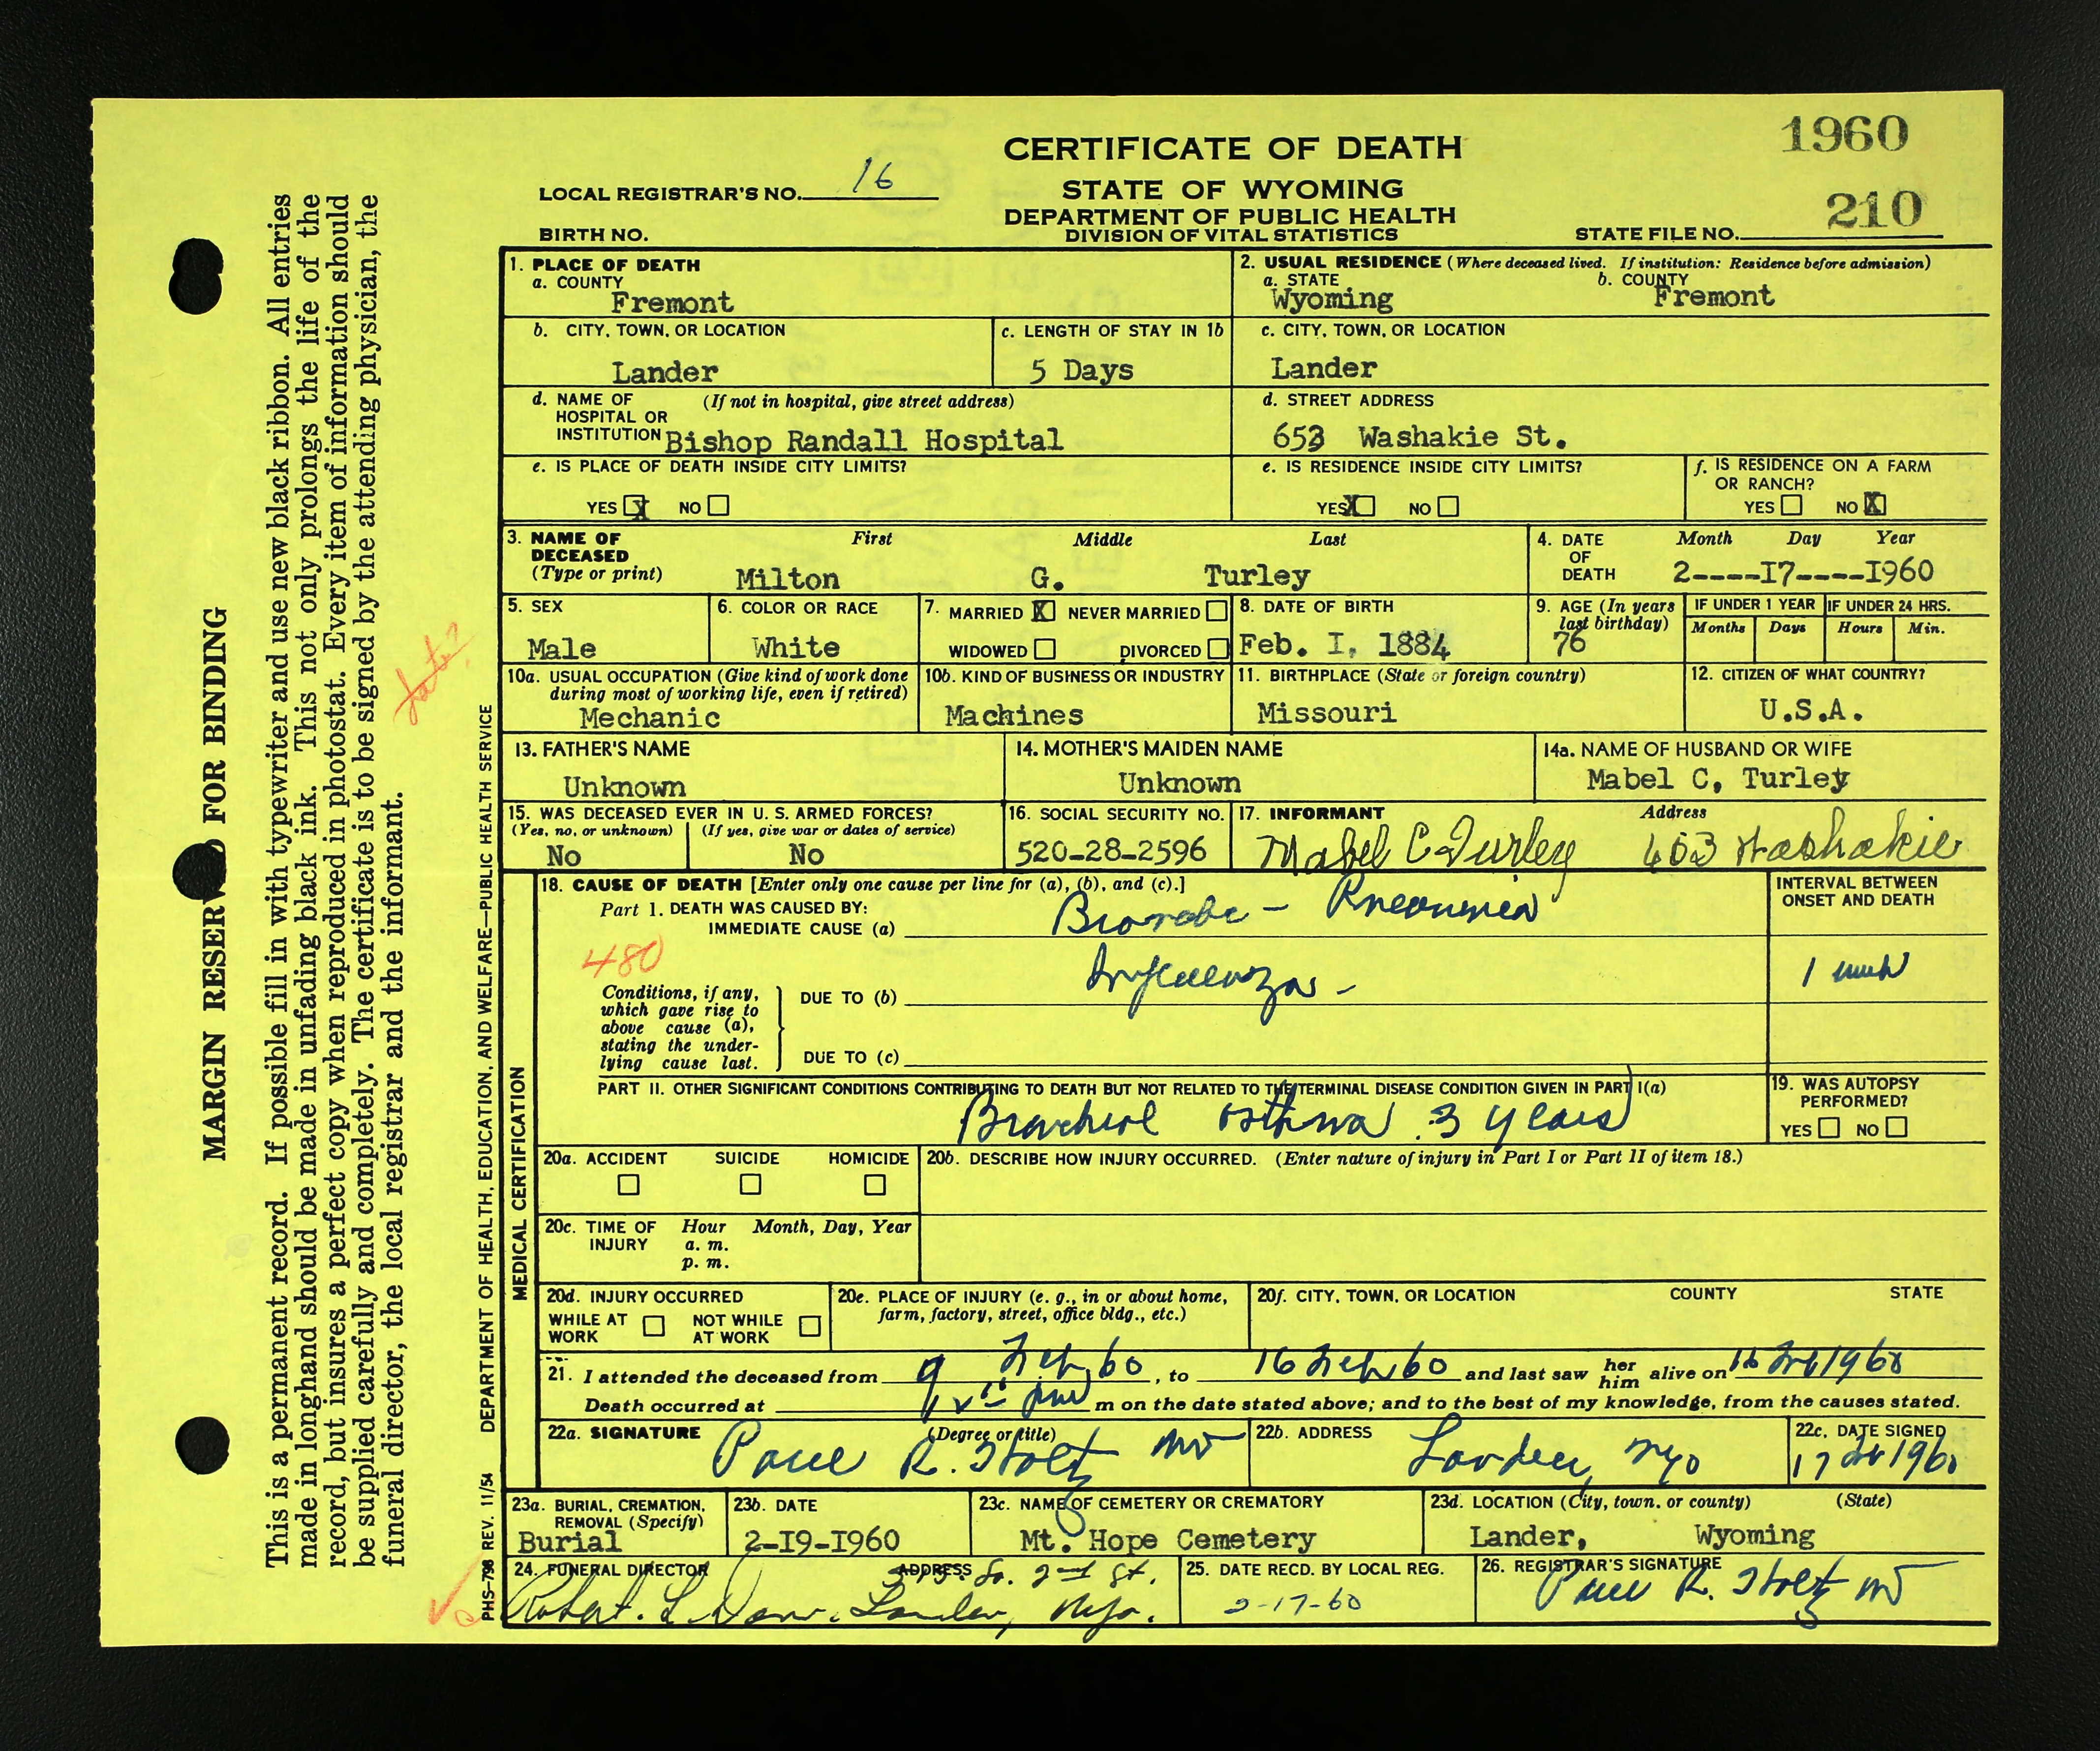 1960
CERTIFICATE OF DEATH
LOCAL REGISTRAR'S NO. 16
STATE OF WYOMING
DEPARTMENT OF PUBLIC HEALTH
DIVISION OF VITAL STATISTICS
BIRTH NO.
STATE FILE NO. 210
1. PLACE OF DEATH
a. COUNTY
Fremont
2. USUAL RESIDENCE (Where deceased lived. If institution: Residence before admission)
a. STATE
Wyoming
b. COUNTY
Fremont
b. CITY, TOWN, OR LOCATION
Lander
c. LENGTH OF STAY IN 1b
5 Days
c. CITY, TOWN, OR LOCATION
Lander
d. NAME OF HOSPITAL OR INSTITUTION (If not in hospital, give street address)
Bishop Randall Hospital
d. STREET ADDRESS
653 Washakie St.
e. IS PLACE OF DEATH INSIDE CITY LIMITS?
YES X NO
e. IS RESIDENCE INSIDE CITY LIMITS?
YES X NO
f. IS RESIDENCE ON A FARM OR RANCH?
YES NO X
3. NAME OF DECEASED (Type or print)
First Middle Last
Milton G. Turley
4. DATE OF DEATH
Month Day Year
2----I7----I960
5. SEX
Male
6. COLOR OR RACE
White
7. MARRIED X NEVER MARRIED
WIDOWED DIVORCED
8. DATE OF BIRTH
Feb. I, 1884
9. AGE (In years last birthday)
76
IF UNDER 1 YEAR
Months Days
IF UNDER 24 HRS.
Hours Min.
10a. USUAL OCCUPATION (Give kind of work done during most of working life, even if retired)
Mechanic
10b. KIND OF BUSINESS OR INDUSTRY
Machines
11. BIRTHPLACE (State or foreign country)
Missouri
12. CITIZEN OF WHAT COUNTRY?
U.S.A.
13. FATHER'S NAME
Unknown
14. MOTHER'S MAIDEN NAME
Unknown
14a. NAME OF HUSBAND OR WIFE
Mabel C. Turley
15. WAS DECEASED EVER IN U. S. ARMED FORCES?
(Yes, no, or unknown) (If yes, give war or dates of service)
No No
16. SOCIAL SECURITY NO.
520-28-2596
17. INFORMANT Address
Mabel C Turley 653 Washakie
MEDICAL CERTIFICATION
18. CAUSE OF DEATH [Enter only one cause per line for (a), (b), and (c).]
Part 1. DEATH WAS CAUSED BY:
IMMEDIATE CAUSE (a) Pneumonia
480
Conditions, if any, which gave rise to above cause (a), stating the underlying cause last.
DUE TO (b) Influenza -
DUE TO (c)
INTERVAL BETWEEN ONSET AND DEATH
1 week
PART II. OTHER SIGNIFICANT CONDITIONS CONTRIBUTING TO DEATH BUT NOT RELATED TO THE TERMINAL DISEASE CONDITION GIVEN IN PART I(a)
Bronchial asthma 3 years
19. WAS AUTOPSY PERFORMED?
YES NO
20a. ACCIDENT SUICIDE HOMICIDE
20b. DESCRIBE HOW INJURY OCCURRED. (Enter nature of injury in Part I or Part II of item 18.)
20c. TIME OF INJURY
Hour Month, Day, Year
a. m.
p. m.
20d. INJURY OCCURRED
WHILE AT WORK NOT WHILE AT WORK
20e. PLACE OF INJURY (e. g., in or about home, farm, factory, street, office bldg., etc.)
20f. CITY, TOWN, OR LOCATION COUNTY STATE
21. I attended the deceased from 9 Feb 60, to 16 Feb 60 and last saw her him alive on 16 Feb 1960
Death occurred at m on the date stated above; and to the best of my knowledge, from the causes stated.
22a. SIGNATURE (Degree or title)
Paul R. Holtz MD
22b. ADDRESS
Lander, Wyo
22c. DATE SIGNED
17 Feb 1960
23a. BURIAL, CREMATION, REMOVAL (Specify)
Burial
23b. DATE
2-I9-I960
23c. NAME OF CEMETERY OR CREMATORY
Mt. Hope Cemetery
23d. LOCATION (City, town, or county) (State)
Lander, Wyoming
24. FUNERAL DIRECTOR ADDRESS
So. 2nd St.
Robert L. Lander, Wyo.
25. DATE RECD. BY LOCAL REG.
2-17-60
26. REGISTRAR'S SIGNATURE
Paul R. Holtz MD
MARGIN RESERVED FOR BINDING
This is a permanent record. If possible fill in with typewriter and use new black ribbon. All entries
made in longhand should be made in unfading black ink. This not only prolongs the life of the
record, but insures a perfect copy when reproduced in photostat. Every item of information should
be supplied carefully and completely. The certificate is to be signed by the attending physician, the
funeral director, the local registrar and the informant.
PHS-798 REV. 11/54 DEPARTMENT OF HEALTH, EDUCATION, AND WELFARE—PUBLIC HEALTH SERVICE